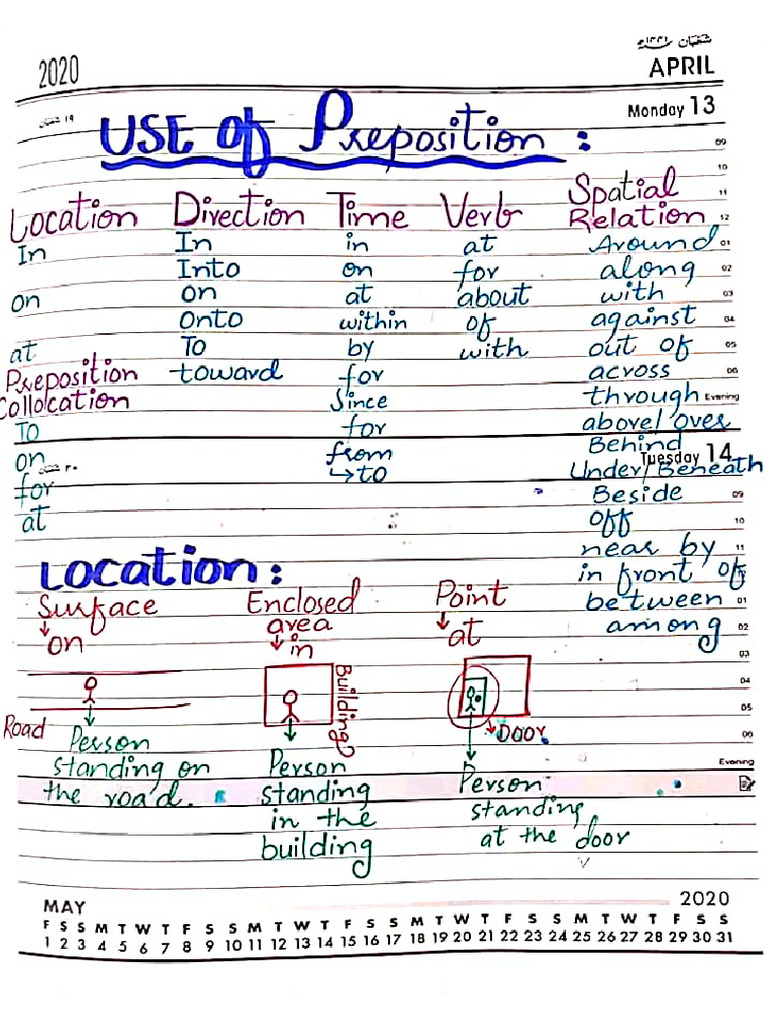 2020
شعبان ١٤٤١ھ
APRIL
Monday 13
USE of Preposition :
Location Direction Time Verb Spatial Relation
In
on
at
In
Into
on
onto
To
toward
in
on
at
within
by
for
Since
for
from
↳to
at
for
about
of
with
Around
along
with
against
out of
across
through
above/over
Behind
Under/Beneath
Beside
off
near by
in front of
between
among
Preposition
Collocation
To
on
for
at
09
10
11
12
01
02
03
04
05
06
Evening
Tuesday 14
09
10
11
01
02
03
04
05
06
Evening
LOCATION:
Surface
↓on
Enclosed
area
↓in
Point
↓at
Road
Building
Door
Person
standing on
the road.
Person
standing
in the
building
Person
standing
at the door
MAY
2020
F S S M T W T F S S M T W T F S S M T W T F S S M T W T F S S
1 2 3 4 5 6 7 8 9 10 11 12 13 14 15 16 17 18 19 20 21 22 23 24 25 26 27 28 29 30 31